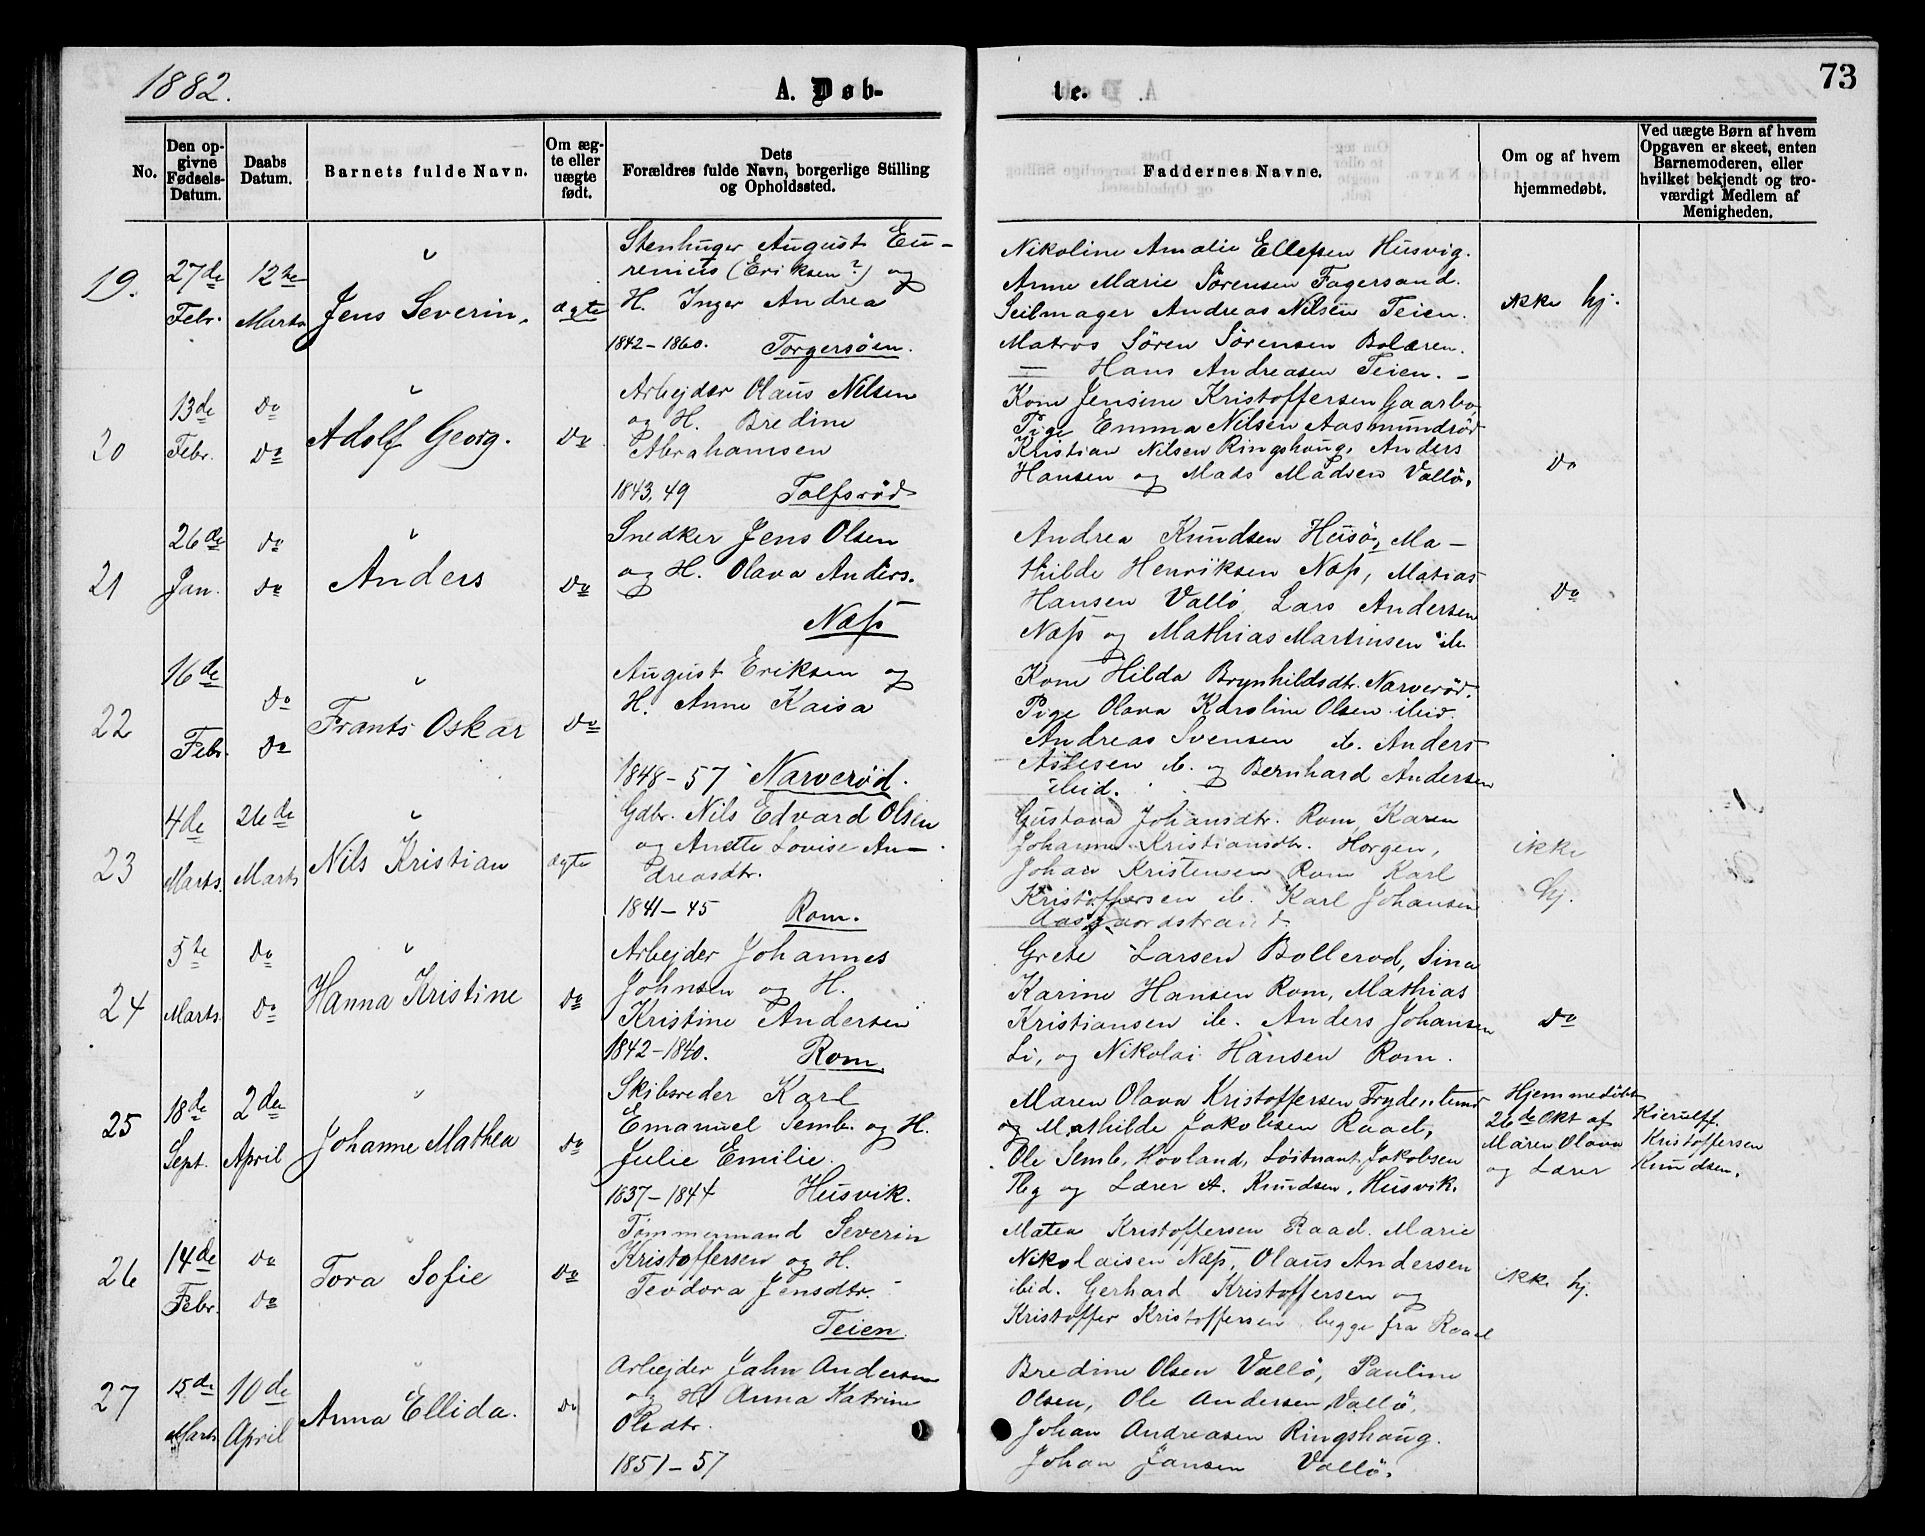 1882.
A. Døb-
te.
73
No.
Den op-
givne
Fødsels-
Datum.
Daabs
Datum.
Barnets fulde Navn.
Om æg-
te eller
uægte
født.
Dets
Forældres fulde Navn, borgerlige Stilling
og Opholdssted.
Faddernes Navne.
Om og af hvem
hjemmedøbt.
Ved uægte Børn af hvem
Opgaven er skeet, enten
Barnemoderen, eller
hvilket bekjendt og tro-
værdigt Medlem af
Menigheden.
19.
27de
Febr.
12te
Marts
Jens Severin.
ægte
Stenhuger August Eu-
renius (Eriksen?) og
H. Inger Andrea
1842-1860. Torgersøen.
Nikoline Amalie Ellefsen Husvig.
Anne Marie Sørensen Fagersand.
Seilmager Andreas Nilsen Teien.
Matros Søren Sørensen Bolæren.
— Hans Andreasen Teien. -
ikke hj.
20
13de
Febr.
Do
Do
Adolf Georg.
Do
Arbejder Olaus Nilsen
og H. Bredine
Abrahamsen
1843, 49 Tolfsrød
Kone Jensine Kristoffersen Gaarbo,
Pige Emma Nilsen Aasmundrød
Kristian Nilsen Ringshaug, Anders
Hansen og Mads Madsen Vallø,
Do
21
26de
Jan.
Do
Do
Anders
Do
Snedker Jens Olsen
og H. Olava Anders.
Næss
Andrea Knudsen Husø, Ma-
thilde Henriksen Næss, Matias
Hansen Vallø Lars Andersen
Næss og Mathias Martinsen ib.
Do
22
16de
Febr.
Do
Do
Frants Oskar
Do
August Eriksen og
H. Anne Kaisa
1848-57 Narverød.
Kone Hilda Brynhildsdtr. Narverød.
Pige Olava Karoline Olsen ibid.
Andreas Svensen ib. Anders
Aslesen ib. og Bernhard Andersen
ibid.
23
4de
Marts.
26de
Marts
Nils Kristian
ægte
Gdbr. Nils Edvard Olsen
og Anette Lovise An-
dreasdtr.
1841-45 Rom.
Gustava Johansdtr. Rom, Karen
Johanne Kristiansdtr. Horgen,
Johan Kristensen Rom Karl
Kristoffersen ib. Karl Johansen
Aasgaardstrand.
ikke
hj.
24
5te
Marts.
Do
Do
Hanna Kristine
Do
Arbejder Johannes
Johnsen og H.
Kristine Andersen
1842-1840. Rom.
Grete Larsen Bollerød, Sina
Karine Hansen Rom, Mathias
Kristiansen ib. Anders Johansen
Li, og Nikolai Hansen Rom.
Do
25
18de
Sept.
2den
April
Johanne Mathea
Do
Skibsreder Karl
Emanuel Semb. og H.
Julie Emilie.
1837-1844 Husvik.
Maren Olava Kristoffersen Frydenlund
og Mathilde Jakobsen Raael,
Ole Semb, Hovland, Løitnant Jakobsen
Tbg og Lærer A. Knudsen, Husvik.
Hjemmedøbt
26de Okt af Kierulff.
Maren Olava Kristoffersen
og Lærer Knudsen.
26
14de
Febr.
Do
Do
Tora Sofie
Do
Tømmermand Severin
Kristoffersen og H.
Teodora Jensdtr.
Teien.
Matea Kristoffersen Raael. Marie
Nikolaisen Næss, Olaus Andersen
ibid. Gerhard Kristoffersen og
Kristoffer Kristoffersen begge fra Raael
ikke hj.
27
15de
Marts
10de
April
Anna Ellida.
Do
Arbejder Jahn Andersen
og H. Anna Katrine
Olsdtr.
1851-57
Bredine Olsen Vallø, Pauline
Olsen, Ole Andersen Vallø.
Johan Andreasen Ringshaug.
Johan Jansen Vallø.